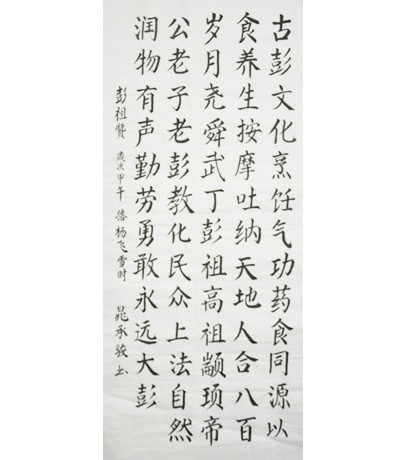 古彭文化烹饪气功药食同源以
食养生按摩吐纳天地人合八百
岁月尧舜武丁彭祖高祖颛顼帝
公老子老彭教化民众上法自然
润物有声勤劳勇敢永远大彭
彭祖赞 歲次甲午 杨飞雪时 晁承骏书